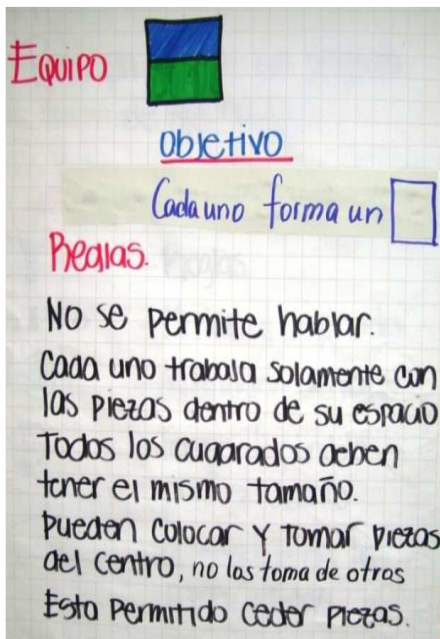 EQUIPO
Objetivo
Cada uno forma un
Reglas.
No se permite hablar.
Cada uno trabaja solamente con
las piezas dentro de su espacio
Todos los cuadrados deben
tener el mismo tamaño.
Pueden colocar y tomar piezas
del centro, no las toma de otros
Esta permitido ceder piezas.